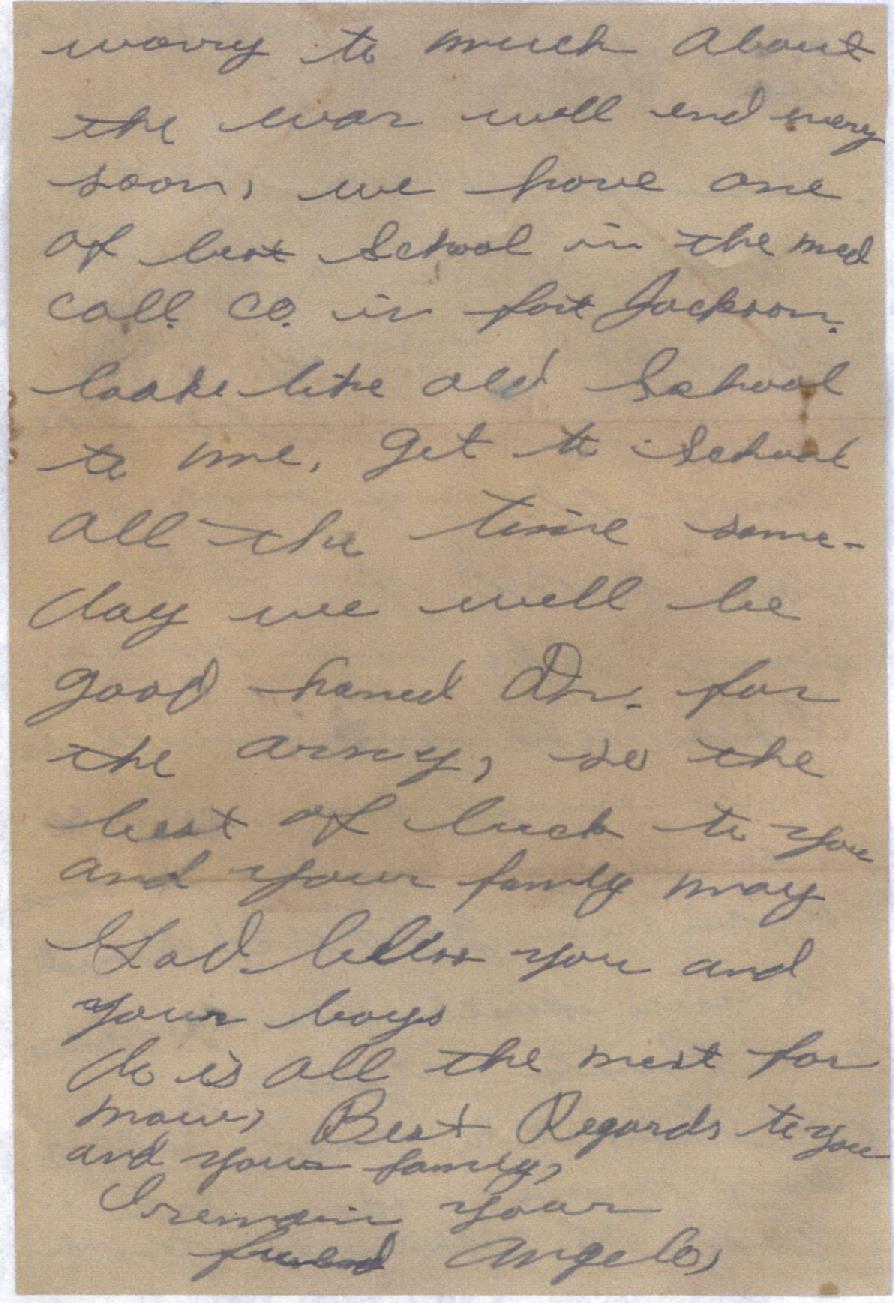 worry to much about
the war will end very
soon, we have one
of best School in the med
call. co. in fort Jackson.
looke like old School
to me, get to School
all the time some-
day we well be
good haned Dr. for
the army, so the
best of luck to you
and your family may
God bless you and
your boys
do is all the mest for
now, Best Regards to you
and your family,
I remain your
friend Angelo,